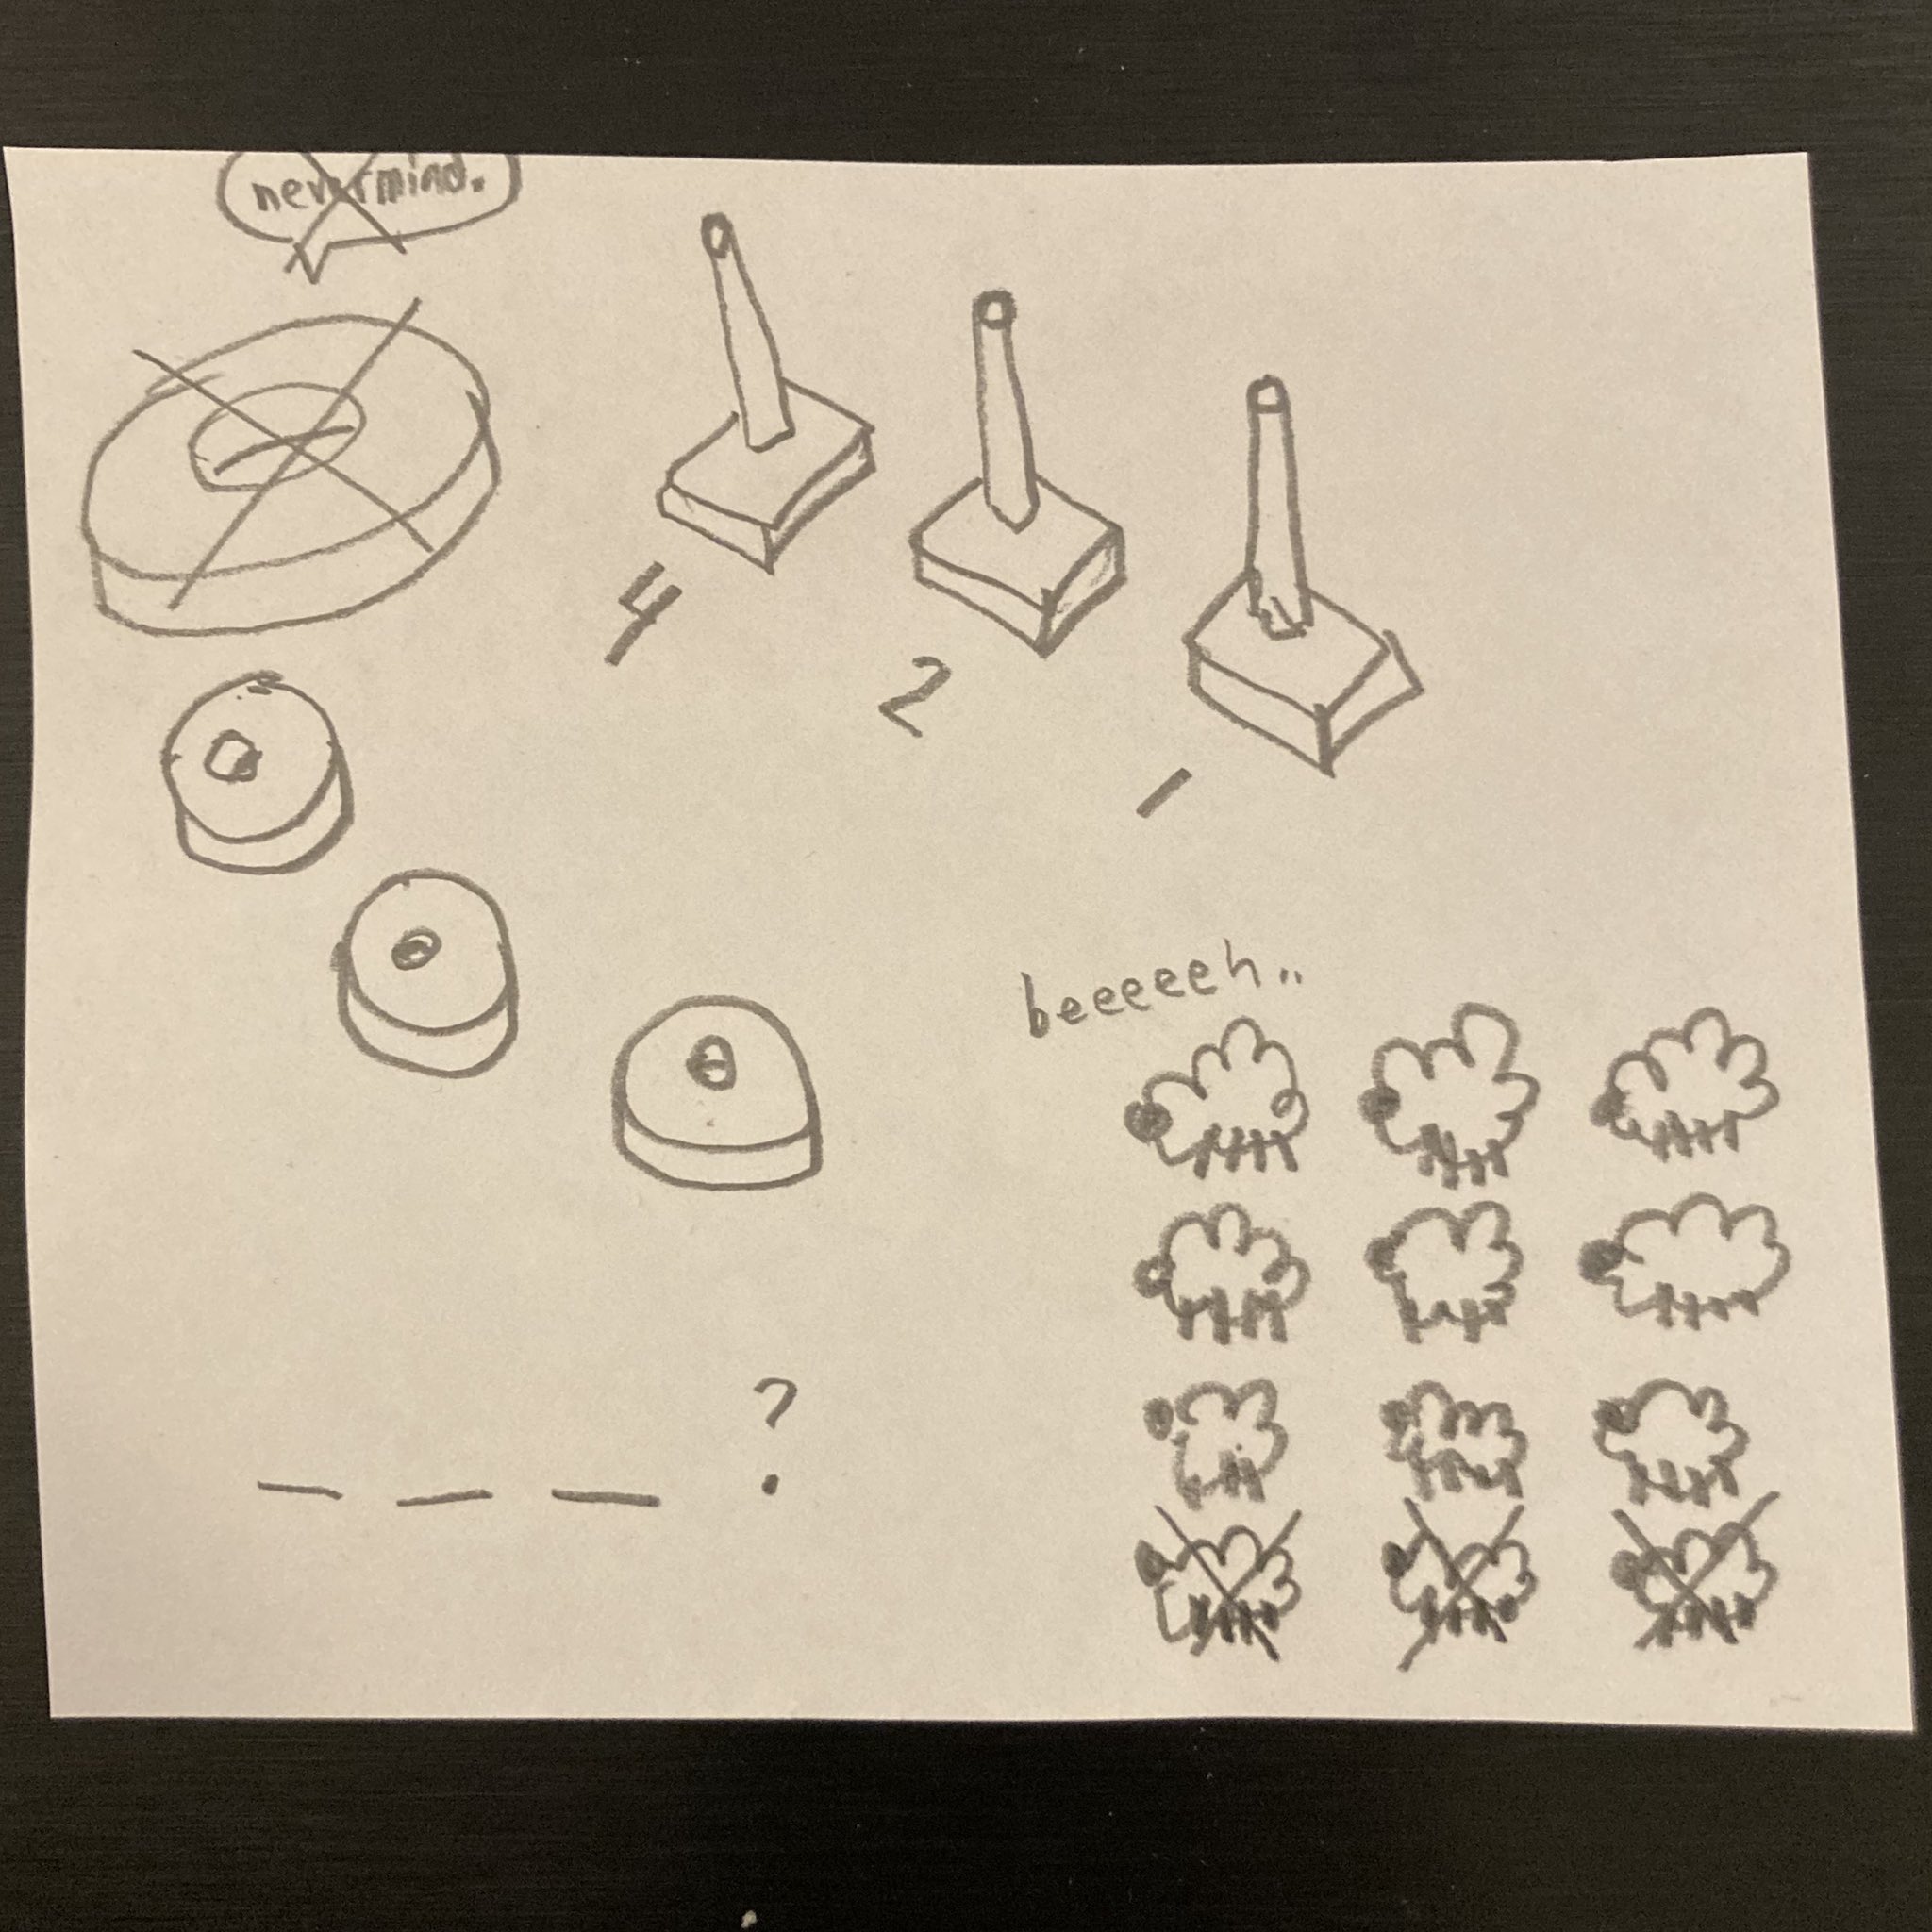 nevermind.
4
2
1
beeeeeh..
_ _ _ ?